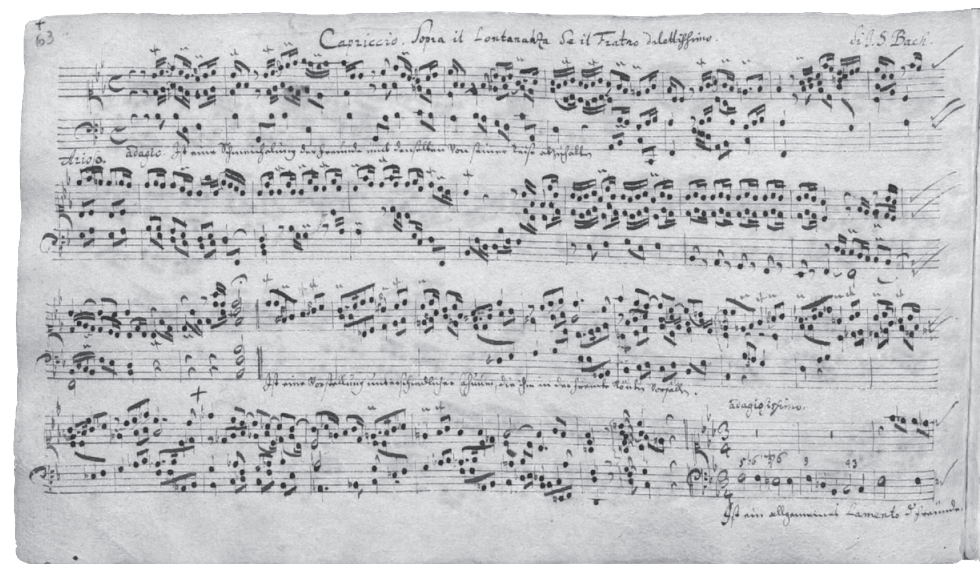 63
Capriccio. Sopra il Lontananza de il Fratro dilettissimo. di J. S. Bach.
Arioso. adagio. Ist eine Schmeichelung der Freunde um denselben von seiner Reise abzuhalten
Ist eine Vorstellung unterschiedlicher Casuum, die ihm in der Fremde könten vorfallen.
adagiosissimo.
Ist ein allgemeines Lamento der Freunde.